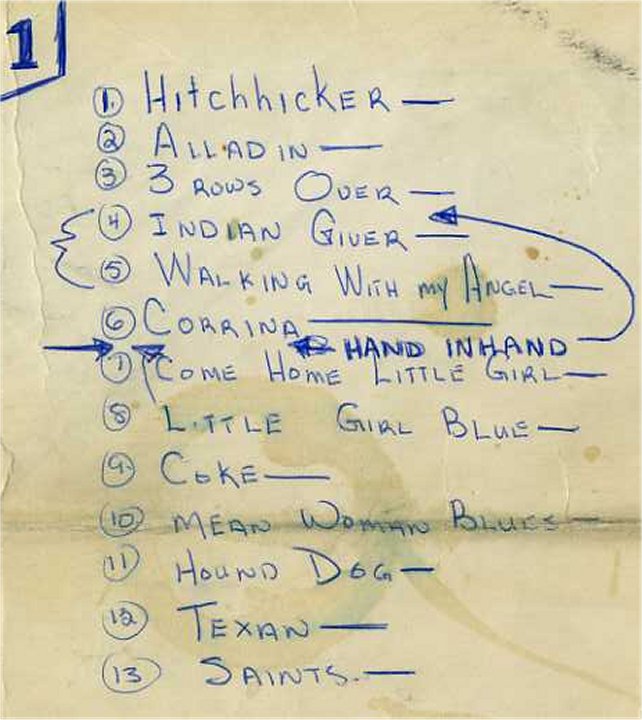 1
1. Hitchhicker —
2 ALLADIN —
3 3 ROWS OVER —
4 INDIAN GIVER —
5 WALKING WITH my ANGEL —
6 CORRINA —
HAND IN HAND —
7 COME HOME LITTLE GIRL —
8 LITTLE GIRL BLUE —
9. COKE —
10 MEAN WOMAN BLUES —
11 HOUND DOG —
12 TEXAN —
13 SAINTS. —